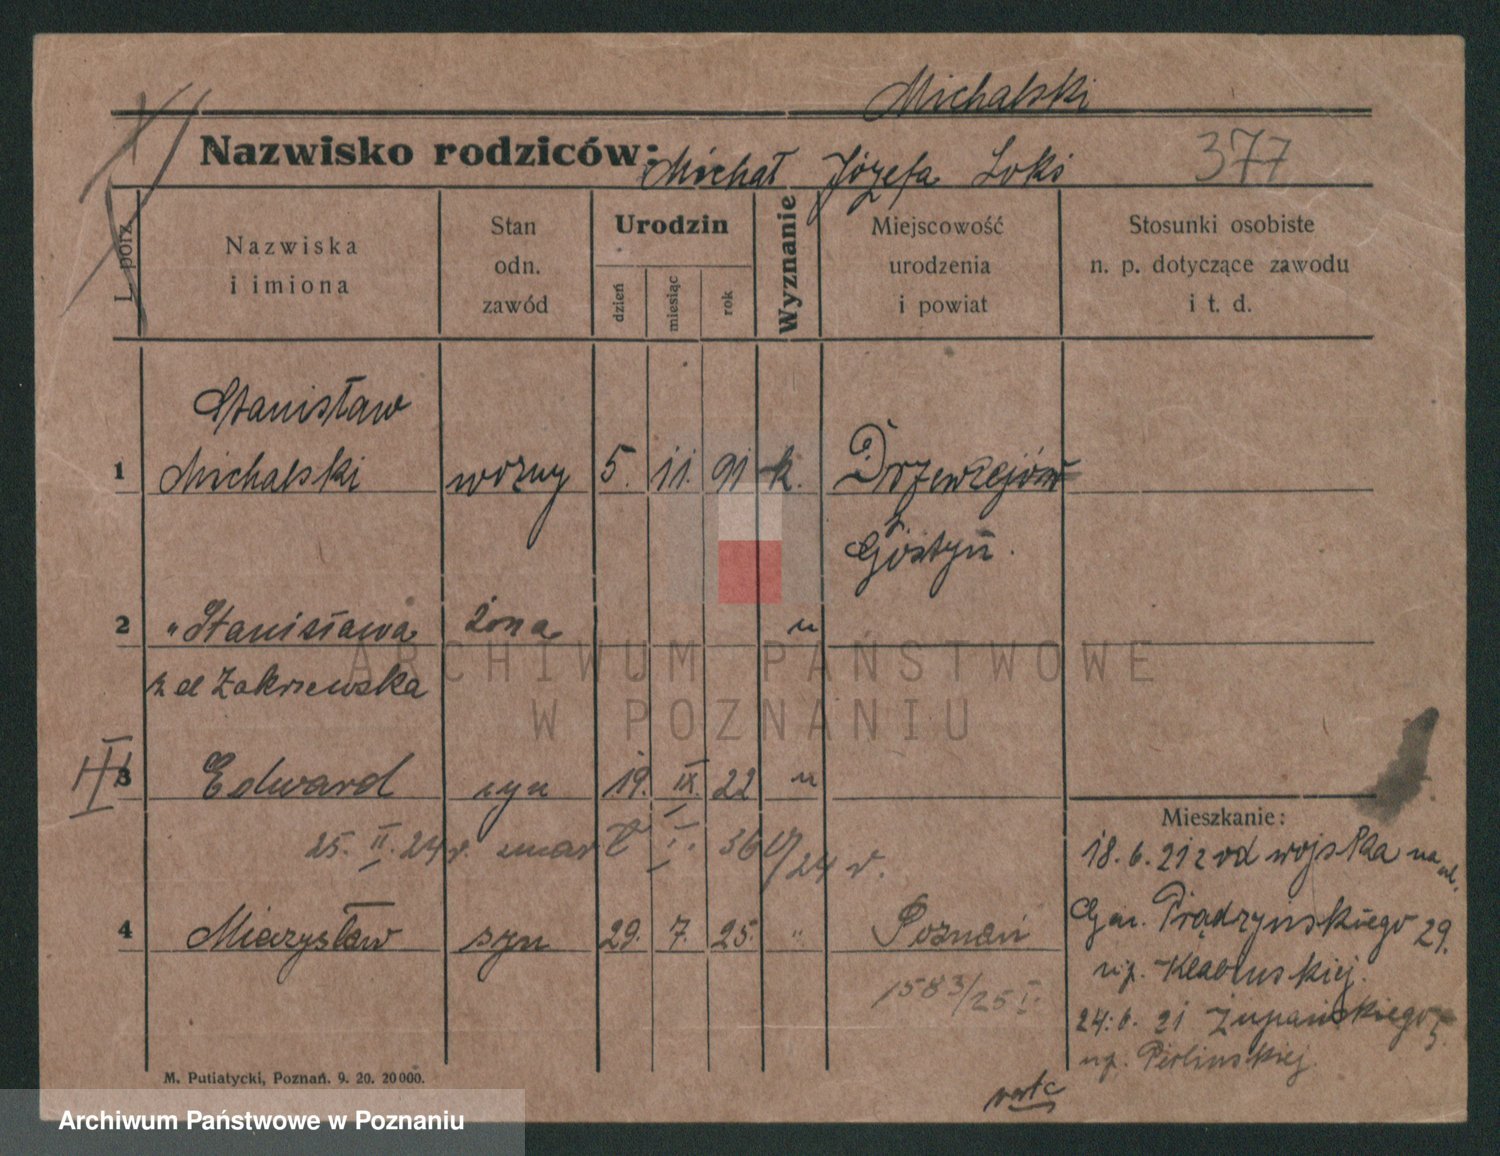 Michalski
Nazwisko rodziców: Michał Józefa Loki
377
L. porz.
Nazwiska
i imiona
Stan
odn.
zawód
Urodzin
dzień
miesiąc
rok
Wyznanie
Miejscowość
urodzenia
i powiat
Stosunki osobiste
n. p. dotyczące zawodu
i t. d.
Stanisław
1 Michalski woźny 5. 11. 91 k.
Gostyń.
2 " Stanisława żona "
z d Zakrzewska
III
3 Edward syn 19. IX. 22 "
25. II. 24 r.
4 Mieczysław syn 29. 7. 25. " Poznań
1583/25 I.
Mieszkanie:
18. 6. 21 z od wojska na ul.
Gen. Prądzyńskiego 29.
u p.
24. 6. 21 Żupańskiego 5.
up. Perlinskiej.
verte
M. Putiatycki, Poznań. 9. 20. 20000.
ARCHIWUM PAŃSTWOWE
W POZNANIU
Archiwum Państwowe w Poznaniu